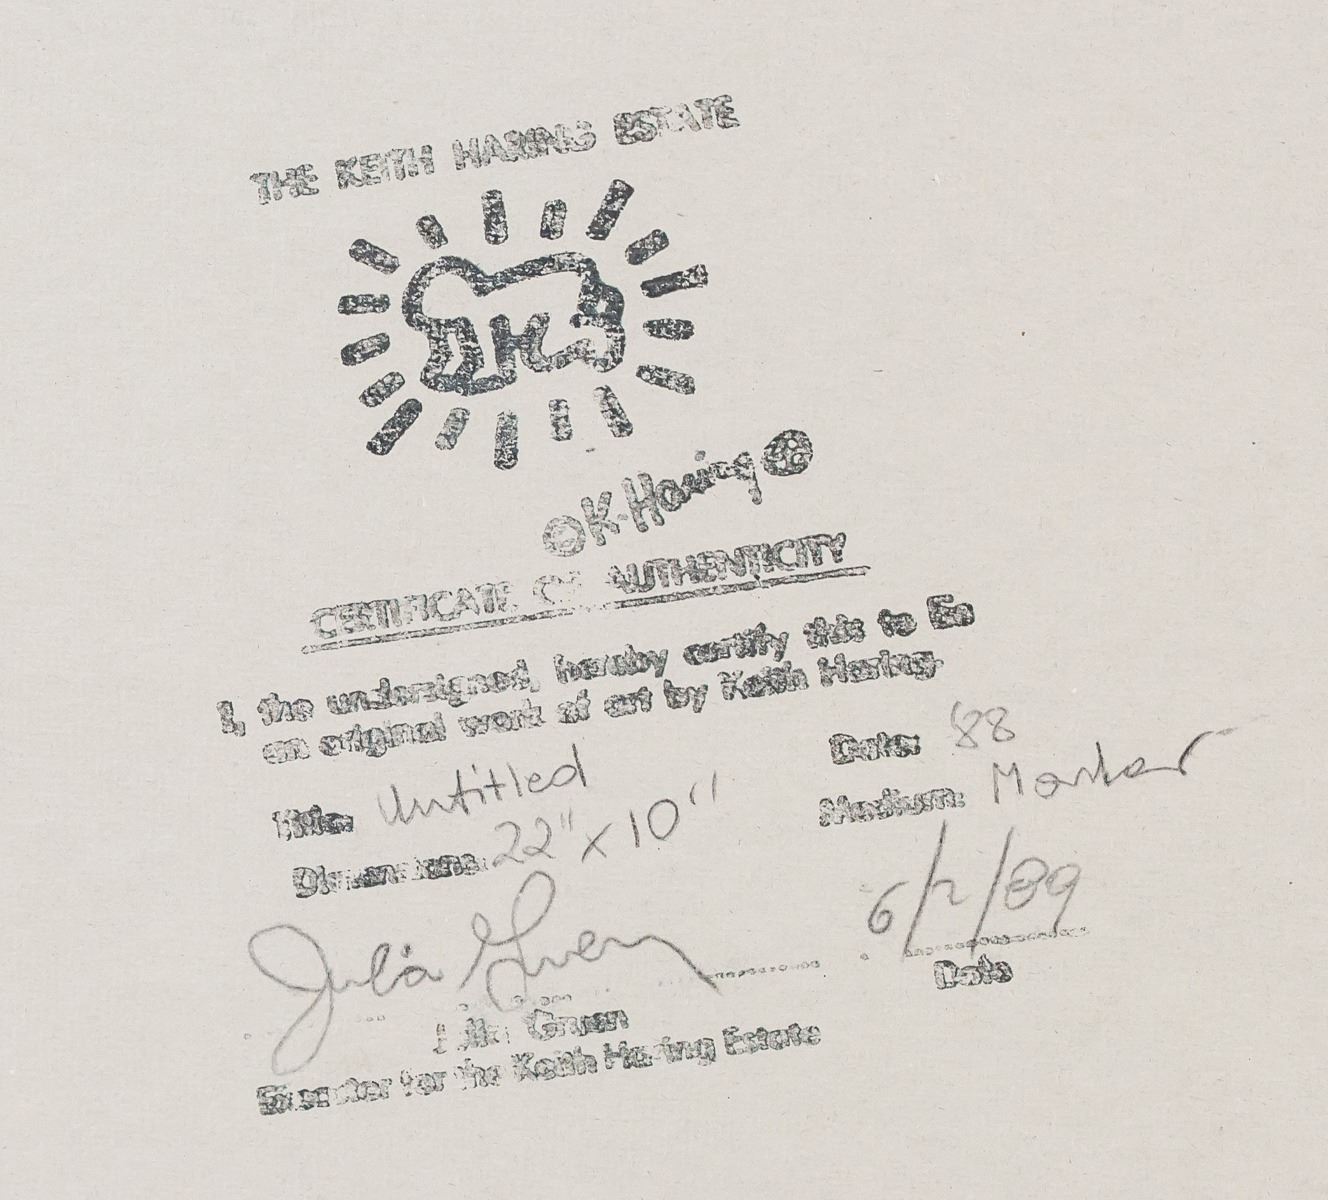 THE KEITH HARING ESTATE
© K·Haring
CERTIFICATE OF AUTHENTICITY
I, the undersigned, hereby certify this to be
an original work of art by Keith Haring.
Title: Untitled
Date: '88
Dimensions: 22" x 10"
Medium: Marker
Julia Gruen
6/2/89
Date
Julia Gruen
Executor for the Keith Haring Estate